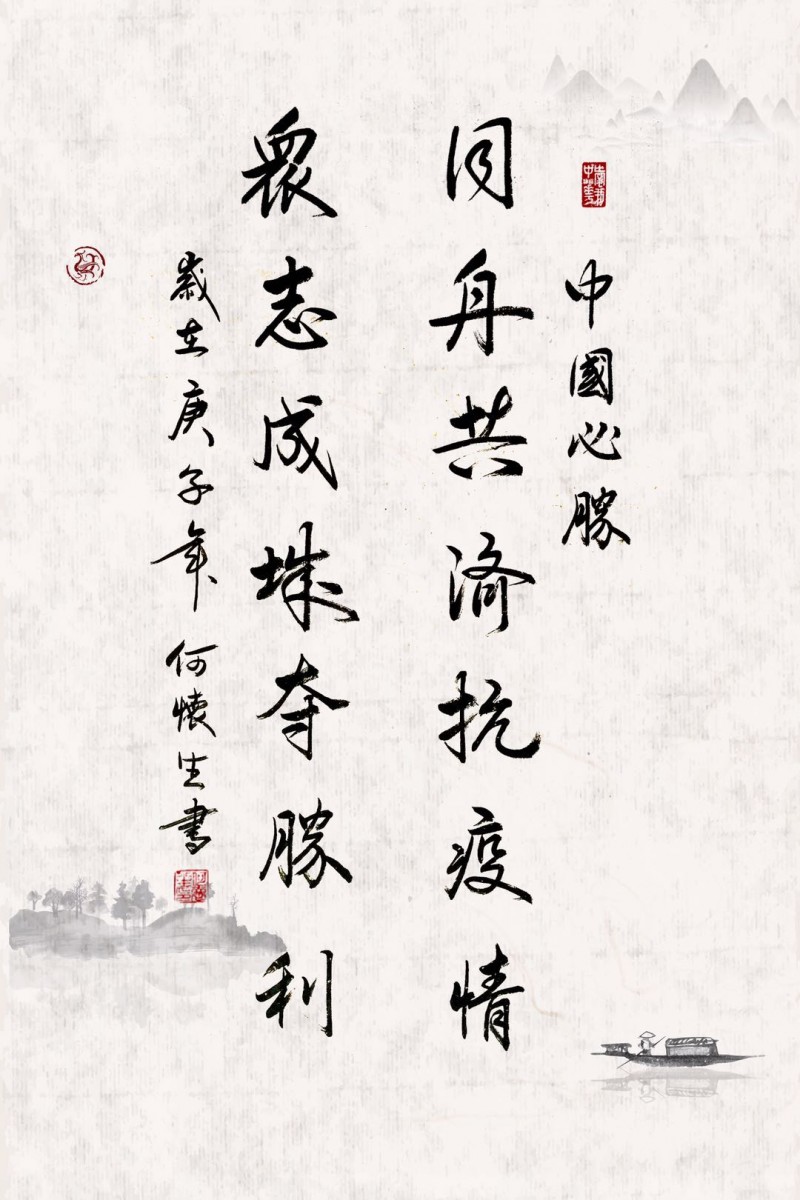 中國必勝
同舟共济抗疫情
衆志成城夺勝利
歲在庚子年 何懷生書